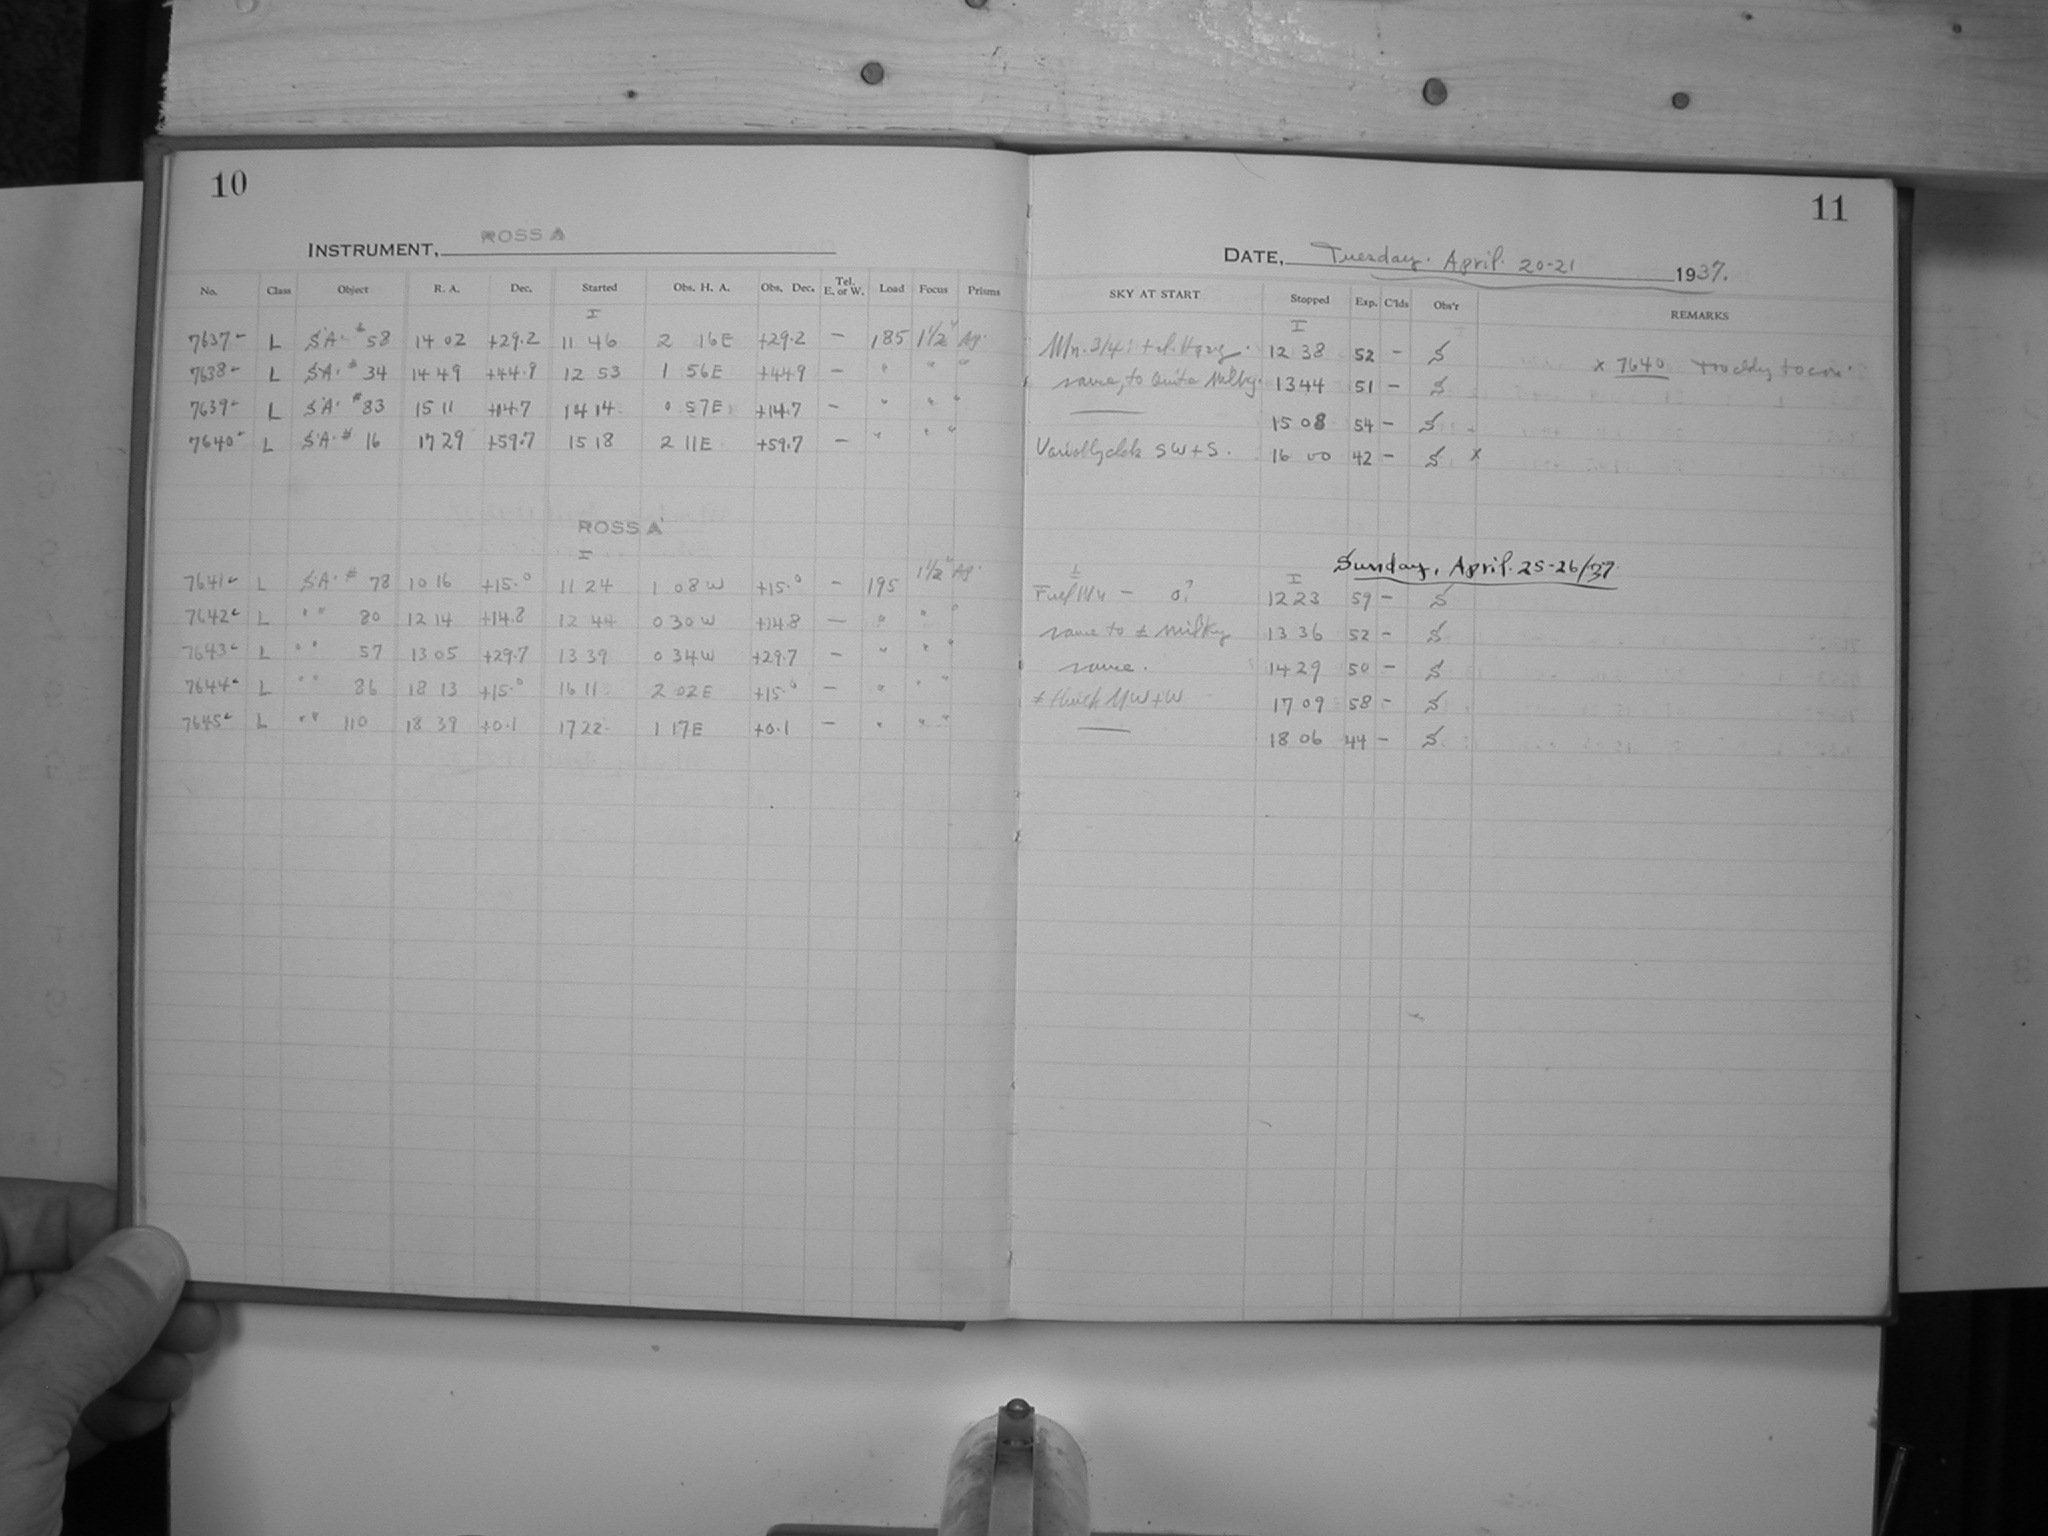 10
11
INSTRUMENT, ROSS A
DATE, Tuesday. April. 20-21 1937.
No. Class Object R. A. Dec. Started Obs. H. A. Obs. Dec. Tel. E. or W. Load Focus Prisms SKY AT START Stopped Exp. C'lds Obs'r REMARKS
7637 L S.A. # 58 14 02 +29.2 11 46 2 16E +29.2 - 185 1½" Ap. Mn. 3/4 12 38 52 - S
7638 L S.A. # 34 14 49 +44.9 12 53 1 56E +44.9 - " " " same, to Quite Milky. 13 44 51 - S × 7640
7639 L S.A. # 83 15 11 +14.7 14 14 0 57E +14.7 - " " " — 15 08 54 - S
7640 L S.A. # 16 17 29 +59.7 15 18 2 11E +59.7 - " " " SW + S. 16 00 42 - S ×
ROSS A
Sunday, April. 25-26/37
7641 L S.A. # 78 10 16 +15.0 11 24 1 08W +15.0 - 195 1½" Ap. 12 23 59 - S
7642 L " " 80 12 14 +14.8 12 44 0 30W +14.8 - " " " same to ± milky 13 36 52 - S
7643 L " " 57 13 05 +29.7 13 39 0 34W +29.7 - " " " same. 14 29 50 - S
7644 L " " 86 18 13 +15.0 16 11 2 02E +15.0 - " " " ± thick NW + W 17 09 58 - S
7645 L " " 110 18 39 +0.1 17 22 1 17E +0.1 - " " " — 18 06 44 - S